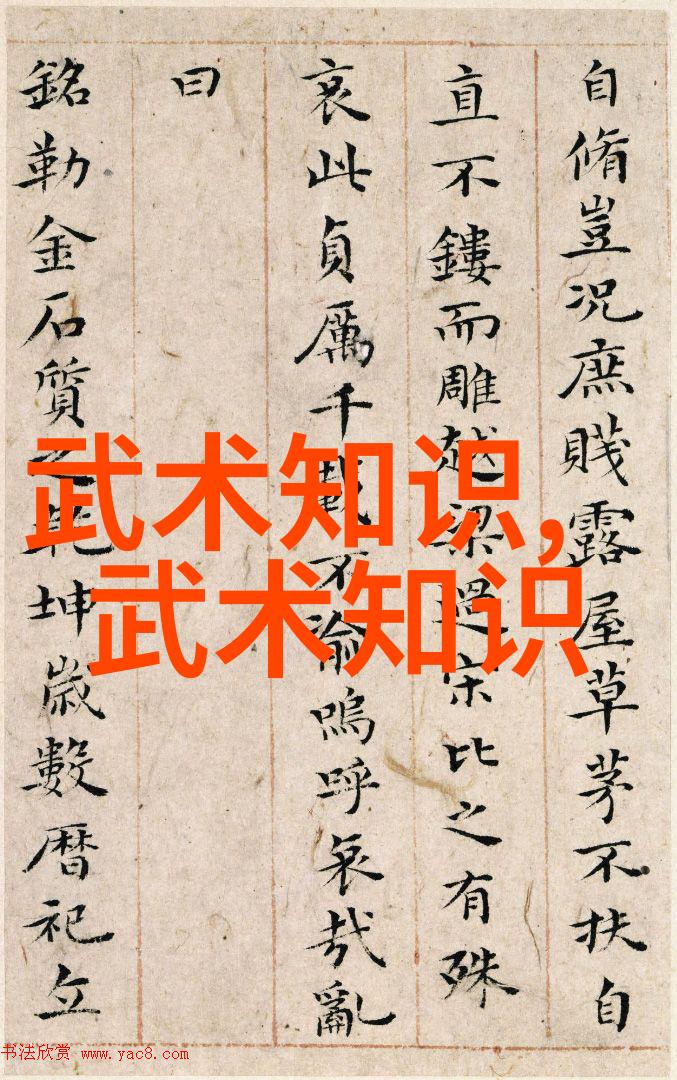 自脩豈况庶賤露屋草茅不扶自
直不鏤而雕越梁過宋比之有殊
哀此貞厲千載不渝嗚呼哀哉亂
曰
銘勒金石質之乾坤歲數暦祀立
武术知识,
武术知识
书法欣赏 www.yac8.com